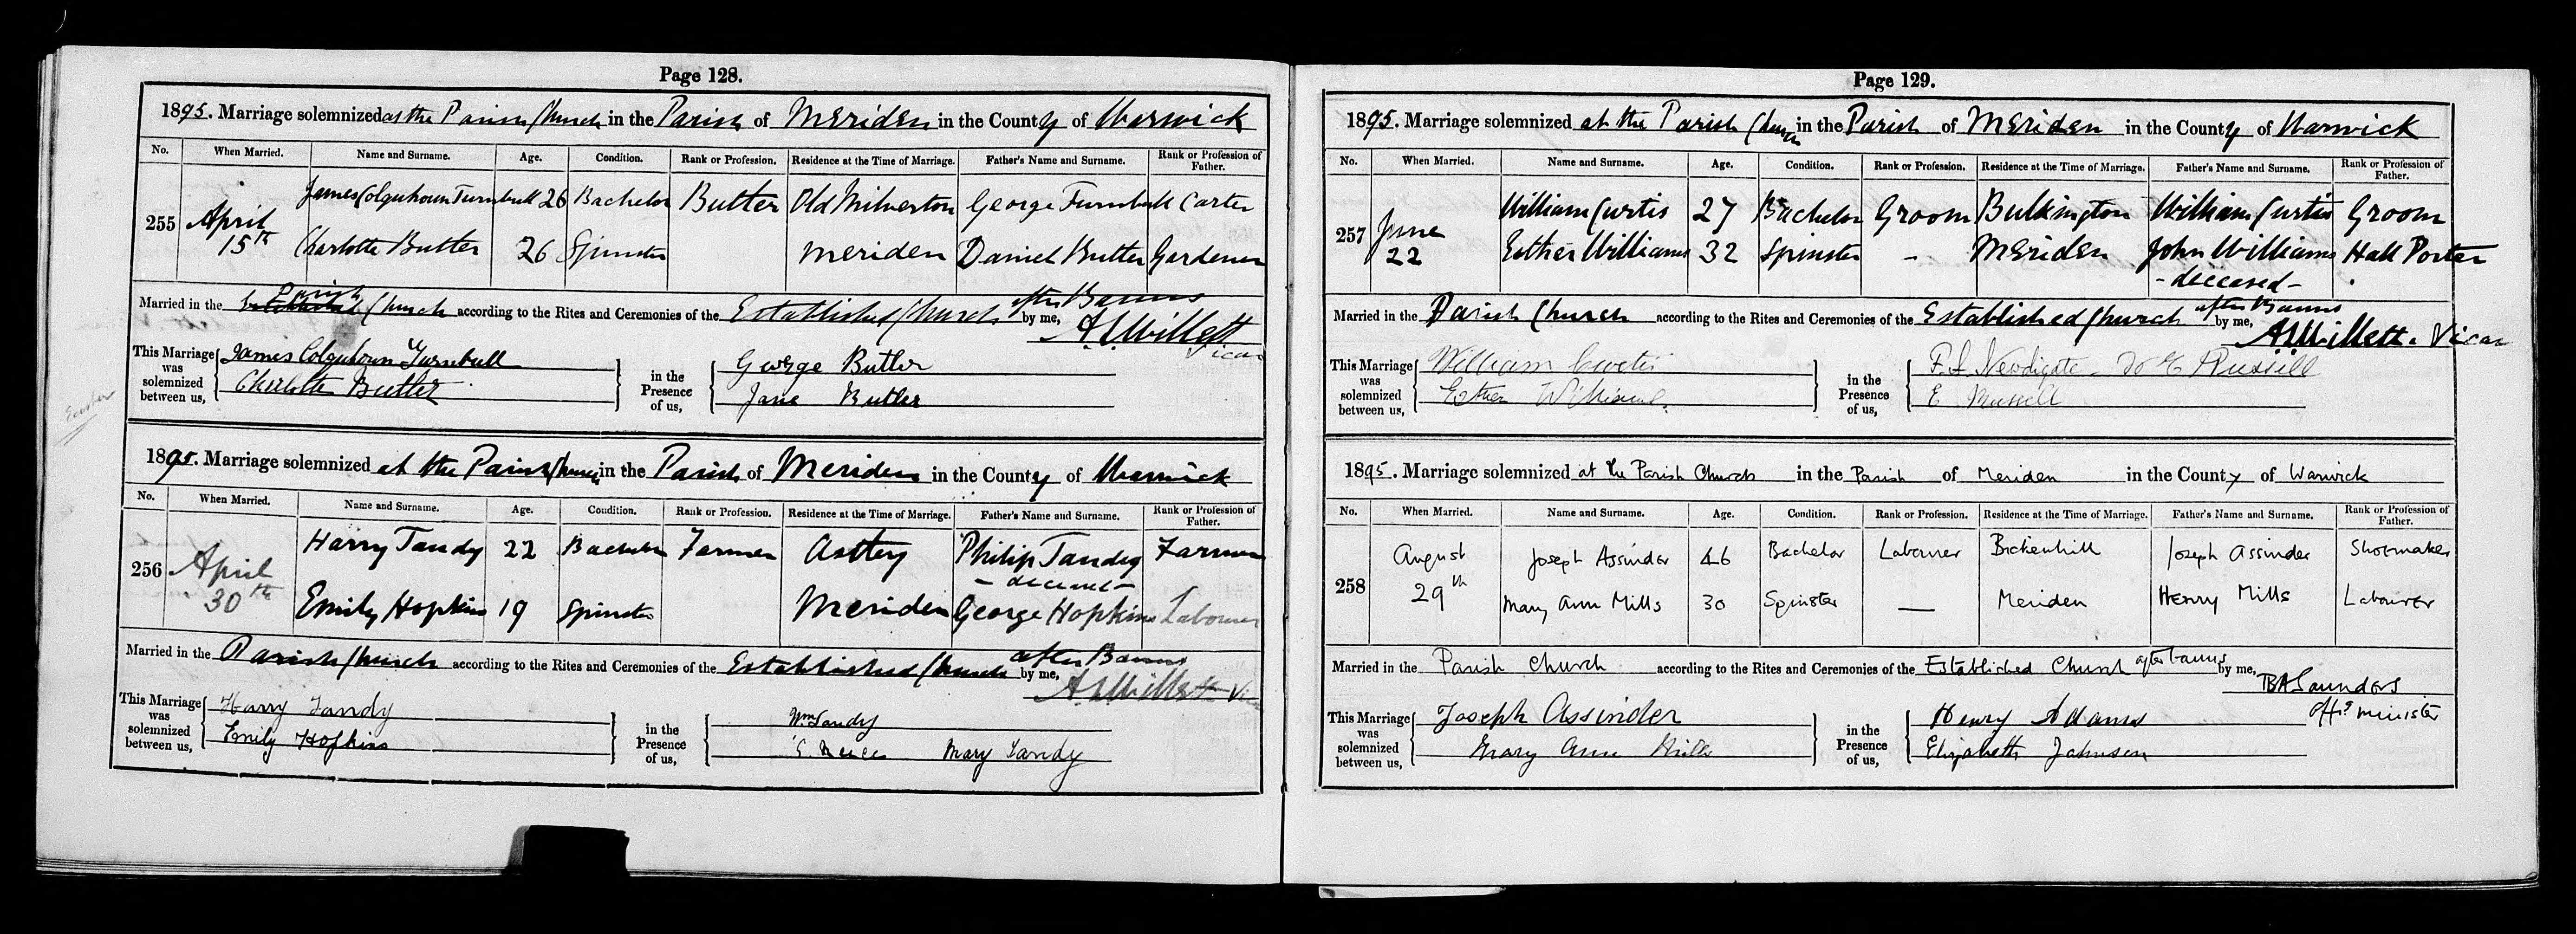 Page 128.
1895. Marriage solemnized at the Parish Church in the Parish of Meriden in the County of Warwick
No. When Married. Name and Surname. Age. Condition. Rank or Profession. Residence at the Time of Marriage. Father's Name and Surname. Rank or Profession of Father.
255 April 15th James Colquhoun Turnbull 26 Bachelor Butler Old Milverton George Turnbull Carter
Charlotte Butler 26 Spinster Meriden Daniel Butler Gardener
Married in the Parish Church according to the Rites and Ceremonies of the Established Church after Banns by me,
A. L. Willett
Vicar
This Marriage was solemnized between us,
James Colquhoun Turnbull
Charlotte Butler
in the Presence of us,
George Butler
Jane Butler
1895. Marriage solemnized at the Parish Church in the Parish of Meriden in the County of Warwick
No. When Married. Name and Surname. Age. Condition. Rank or Profession. Residence at the Time of Marriage. Father's Name and Surname. Rank or Profession of Father.
256 April 30th Harry Tandy 22 Bachelor Farmer Astley Philip Tandy Farmer
- deceased -
Emily Hopkins 19 Spinster Meriden George Hopkins Labourer
Married in the Parish Church according to the Rites and Ceremonies of the Established Church after Banns by me,
A. L. Willett
This Marriage was solemnized between us,
Harry Tandy
Emily Hopkins
in the Presence of us,
Wm Tandy
Mary Tandy
Page 129.
1895. Marriage solemnized at the Parish Church in the Parish of Meriden in the County of Warwick
No. When Married. Name and Surname. Age. Condition. Rank or Profession. Residence at the Time of Marriage. Father's Name and Surname. Rank or Profession of Father.
257 June 22 William Curtis 27 Bachelor Groom Bulkington William Curtis Groom
Esther Williams 32 Spinster - Meriden John Williams Hall Porter
- deceased -
Married in the Parish Church according to the Rites and Ceremonies of the Established Church after Banns by me,
A. L. Willett. Vicar
This Marriage was solemnized between us,
William Curtis
Esther Williams
in the Presence of us,
Newdigate Russell
E Russell
1895. Marriage solemnized at the Parish Church in the Parish of Meriden in the County of Warwick
No. When Married. Name and Surname. Age. Condition. Rank or Profession. Residence at the Time of Marriage. Father's Name and Surname. Rank or Profession of Father.
258 August 29th Joseph Assinder 46 Bachelor Labourer Bickenhill Joseph Assinder Shoemaker
Mary Ann Mills 30 Spinster — Meriden Henry Mills Labourer
Married in the Parish Church according to the Rites and Ceremonies of the Established Church after banns by me,
BA Saunders
Offg Minister
This Marriage was solemnized between us,
Joseph Assinder
Mary Ann Mills
in the Presence of us,
Henry Adams
Elizabeth Johnson